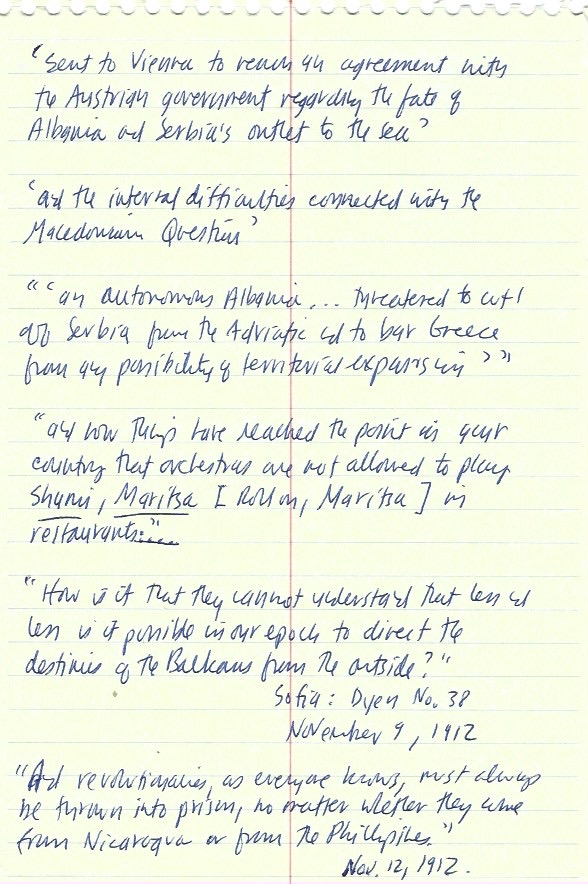 'Sent to Vienna to reach an agreement with
the Austrian government regarding the fate of
Albania and Serbia's outlet to the sea'
'and the internal difficulties connected with the
Macedonian Question'
"'an autonomous Albania... threatened to cut
off Serbia from the Adriatic and to bar Greece
from any possibility of territorial expansion'"
"and now things have reached the point in your
country that orchestras are not allowed to play
Shumi, Maritsa [Roll on, Maritsa] in
restaurants..."
"How is it that they cannot understand that less and
less is it possible in our epoch to direct the
destinies of the Balkans from the outside?"
Sofia: Dyen No. 38
November 9, 1912
"And revolutionaries, as everyone knows, must always
be thrown into prison, no matter whether they come
from Nicaragua or from the Phillipines."
Nov. 12, 1912.